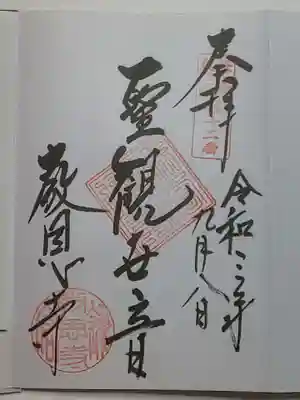 奉拝
令和三年
九月八日
聖觀世音
厳恩寺